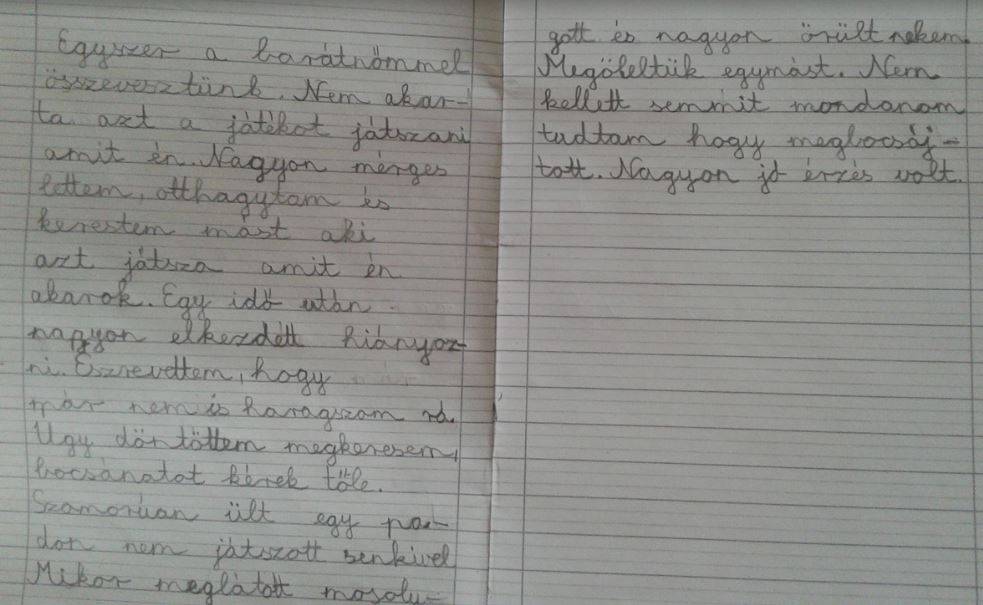 Egyszer a barátnőmmel
összevesztünk. Nem akar-
ta azt a játékot játszani
amit én. Nagyon mérges
lettem, otthagytam és
kerestem mást aki
azt játsza amit én
akarok. Egy idő után
nagyon elkezdett hiányoz-
ni. Észrevettem, hogy
már nem is haragszom rá.
Úgy döntöttem megkeresem,
bocsánatot kérek tőle.
Szamorúan ült egy pa-
don nem játszott senkivel
Mikor meglátott mosoly-
gott és nagyon örült nekem.
Megöleltük egymást. Nem
kellett semmit mondanom
tudtam hogy megbocsáj-
tott. Nagyon jó érzés volt.